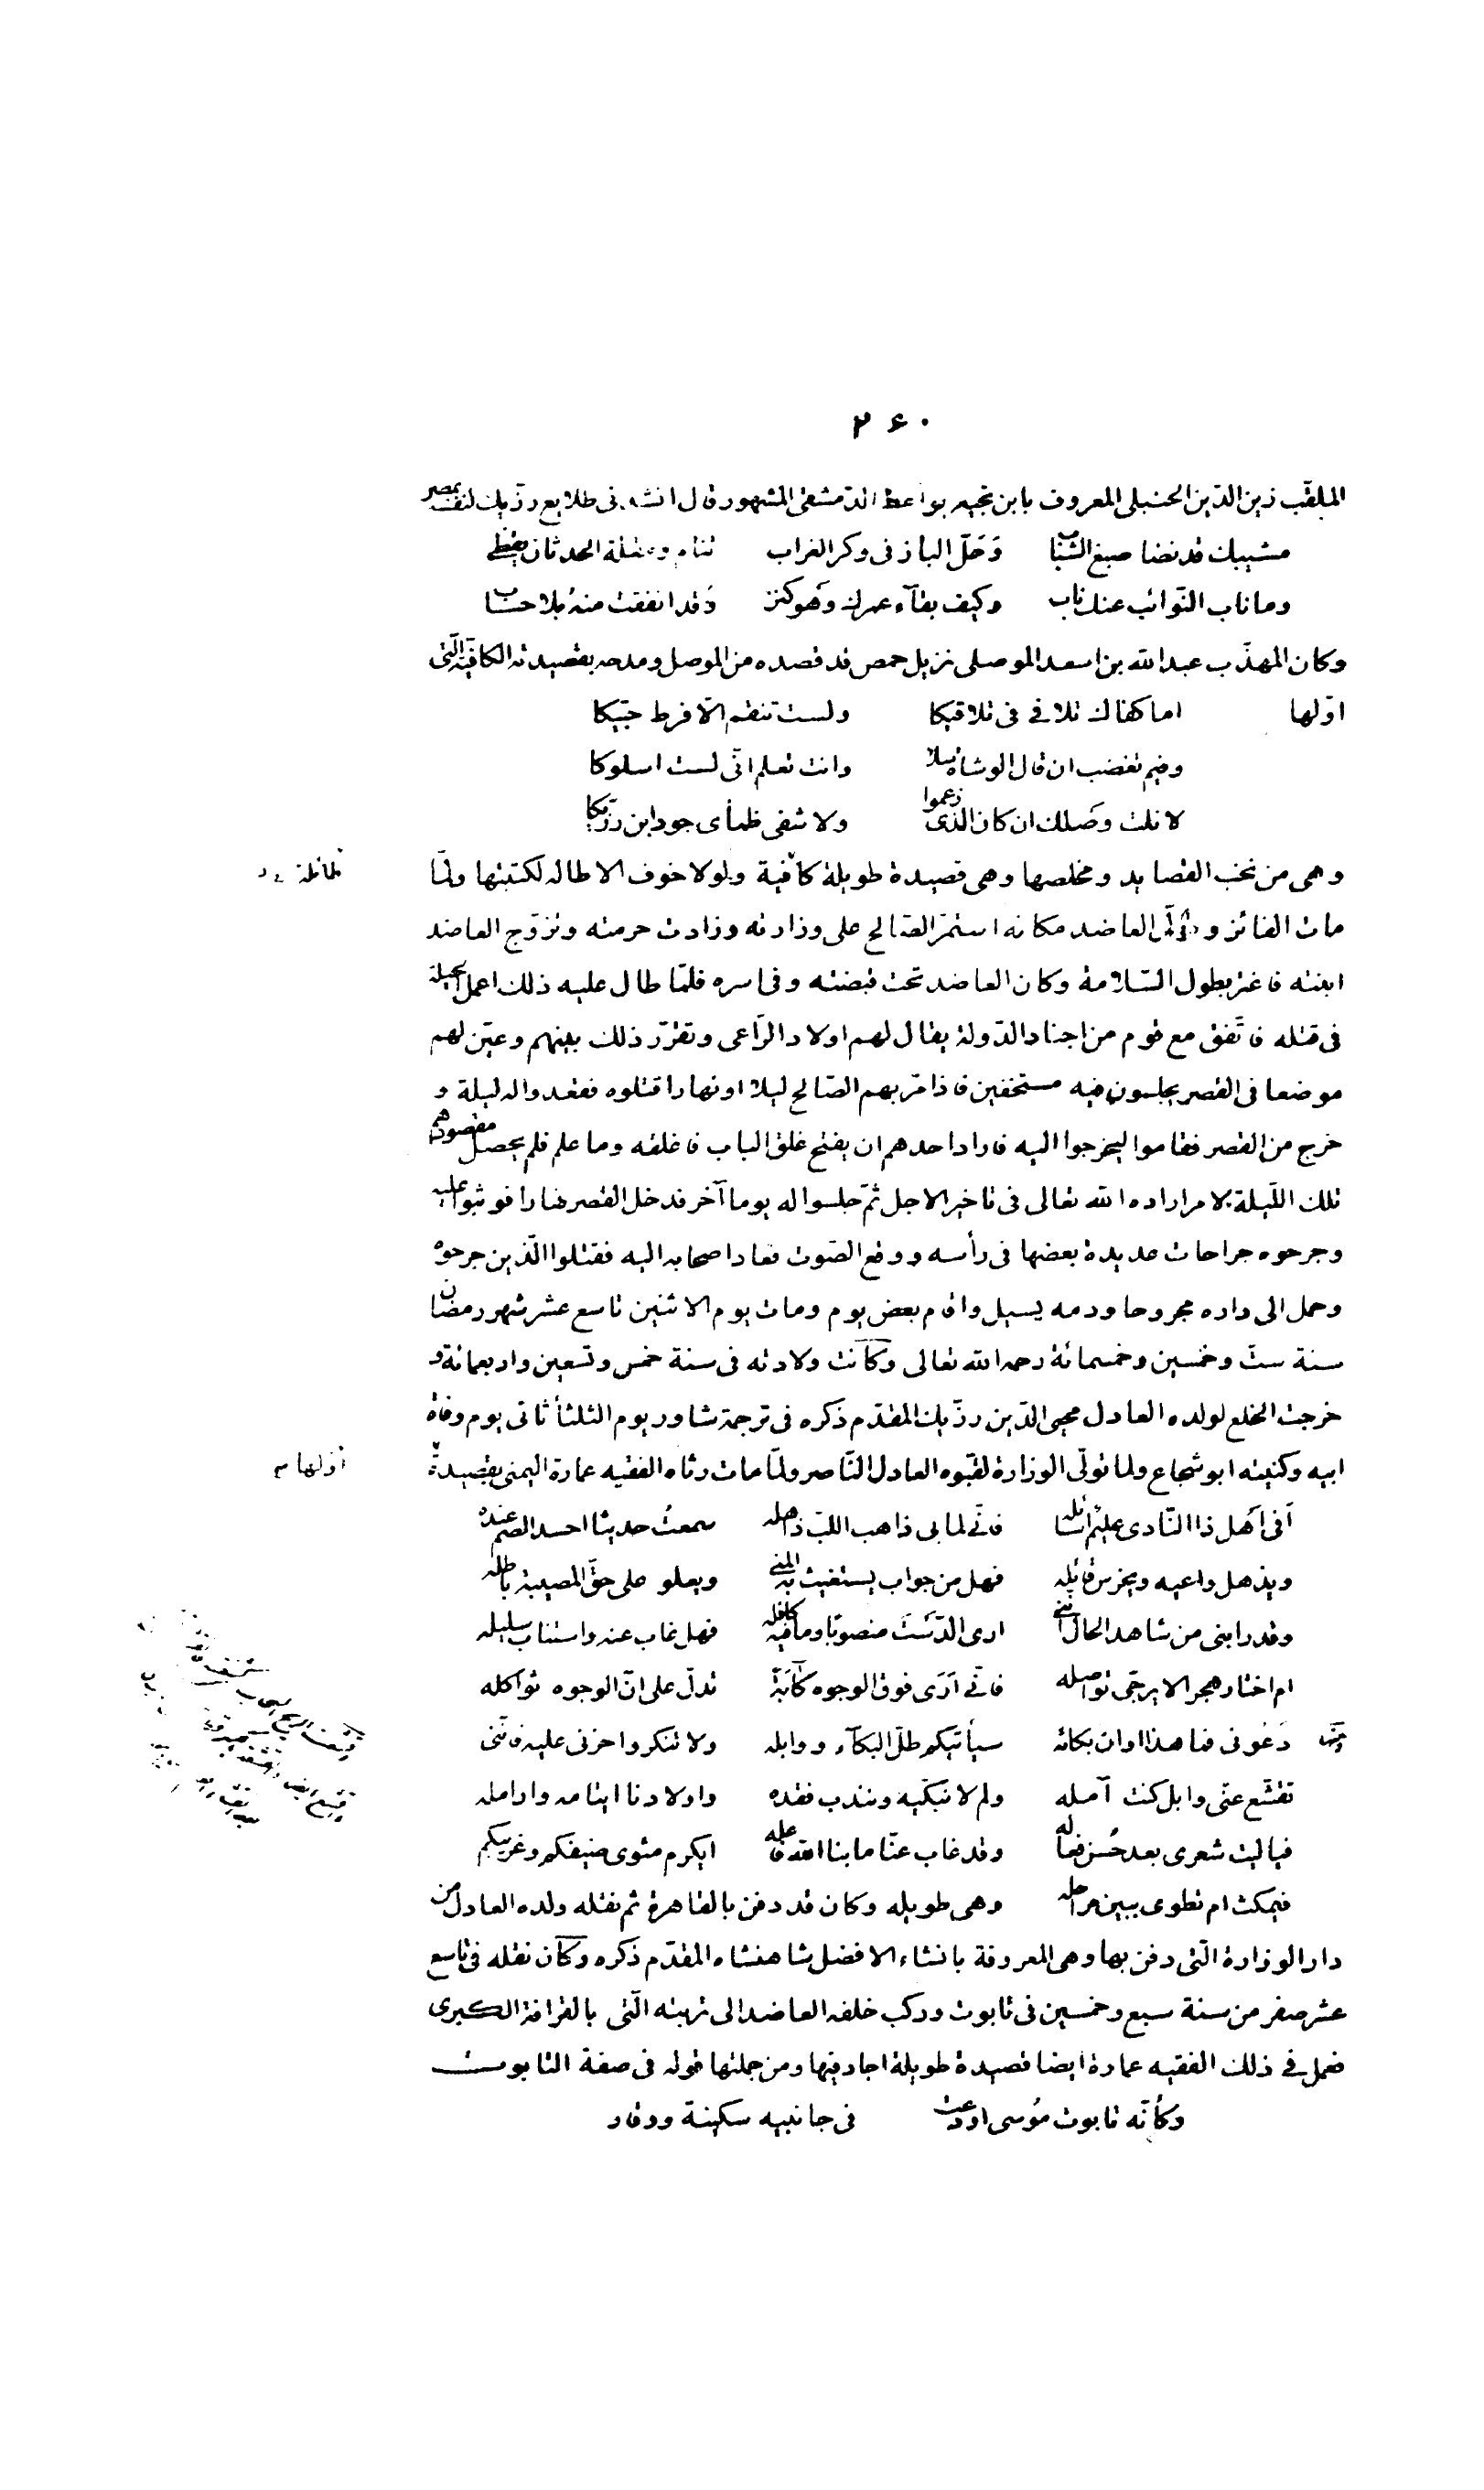 ۲۶۰
الملقّب زين الدّين الحنبلى المعروف بابن نجيه الواعظ الدّمشقى المشهور قال انشد فى طلايع رزّيك لنفسه بمصر
مشيبك قد نضا صبغ الشّباب وَحَلّ الباز فى وكر الغراب تنام ومقلة الحدثان يقظى
وما ناب النّوائب عنك ناب وكيف بقآء عمرك وهو كنز وَقد انفقت منهُ بلا حساب
وكان المهذّب عبد الله بن اسعد الموصلى نزيل حمص قد قصده من الموصل ومدحه بقصيدته الكافيّة الّتى
اوّلها اما كفاك تلافى فى تلاقيكا ولست تنقم الّا فرط حبّيكا
وفيم تغضب ان قال الوشاة سلا وانت تعلم انّى لست اسلوكا
لا نلت وصلك ان كان الّذى زعموا ولا شفى ظمأى جود ابن رزّيكا
وهى من نخب القصايد ومخلصها وهى قصيدة طويلة كافية ولولا خوف الاطاله لكتبتها ولمّا
مات الفائز وتولّى العاضد مكانه استمرّ الصّالح على وزارته وزادت حرمته وتزوّج العاضد
ابنته فاغتر بطول السّلامة وكان العاضد تحت قبضته وفى اسره فلمّا طال عليه ذلك اعمل الحيلة
فى قتله فاتّفق مع قوم من اجناد الدّولة يقال لهم اولاد الرّاعى وتقرّر ذلك بينهم وعيّن لهم
موضعا فى القصر يجلسون فيه مستخفين فاذا مرّ بهم الصّالح ليلا او نهارا قتلوه فقعدوا له ليلة و
خرج من القصر فقاموا ليخرجوا اليه فاراد احدهم ان يفتح غلق الباب فاغلقه وما علم فلم يحصل مقصودهم
تلك اللّيلة لامر اراده الله تعالى فى تاخير الاجل ثمّ جلسوا له يوما آخر فدخل القصر نهارا فوثبوا عليه
وجرحوه جراحات عديدة بعضها فى رأسه ووقع الصّوت فعاد اصحابه اليه فقتلوا الّذين جرحوه
وحمل الى داره مجروحا ودمه يسيل واقام بعض يوم ومات يوم الاثنين تاسع عشر شهر رمضان
سنة ستّ وخمسين وخمسمائة رحمه الله تعالى وكانت ولادته فى سنة خمس وتسعين واربعمائة و
خرجت الخلع لولده العادل محيى الدّين رزّيك المقدّم ذكره فى ترجمة شاور يوم الثلثأ ثانى يوم وفاة
ابيه وكنيته ابو شجاع ولما تولّى الوزارة لقبّوه العادل النّاصر ولمّا مات رثاه الفقيه عمارة اليمنى بقصيدة
اوّلها
اَفى اَهل ذا النّادى عليم اسائله فانّى لما بى ذاهب اللبّ ذاهله سمعتُ حديثا احسد الصّم عنده
ويذهل واعيه ويخرس قائله فهل من جواب يستغيث به المنى ويعلو على حقّ المصيبة باطله
وقد رابنى من شاهد الحال اننى ارى الدّست منصوبًا وما فيه كافله فهل غاب عنه واستناب سليله
ام اختار هجرا لا يرجّى تواصله فانّى اَرَى فوق الوجوه كآبَة تدلّ على انّ الوجوه ثواكله
دَعُونى فما هذا اوان بكائه سيأتيكم طلّ البكآء ووابله ولا تنكروا حزنى عليه فانّنى
تقشّع عنّى وابل كنت آمله ولم لا نبكّيه ونندب فقده واولادنا ايتامه وارامله
فياليت شعرى بعد حُسن فعاله وقد غاب عنّا ما بنا الله فاعله ايكرم مثوى ضيفكم وغريبكم
فيمكث ام تطوى ببين مراحله وهى طويله وكان قد دفن بالقاهرة ثم نقله ولده العادل من
دار الوزارة الّتى دفن بها وهى المعروفة بانشاء الافضل شاهنشاه المقدّم ذكره وكان نقله فى تاسع
عشر صفر من سنة سبع وخمسين فى تابوت وركب خلفه العاضد الى تربته الّتى بالقرافة الكبرى
فعمل فى ذلك الفقيه عمارة ايضا قصيدة طويلة اجاد فيها ومن جملتها قوله فى صفة التابوت
وكأنّه تابوت مُوسى اودعت فى جانبيه سكينة ووقار